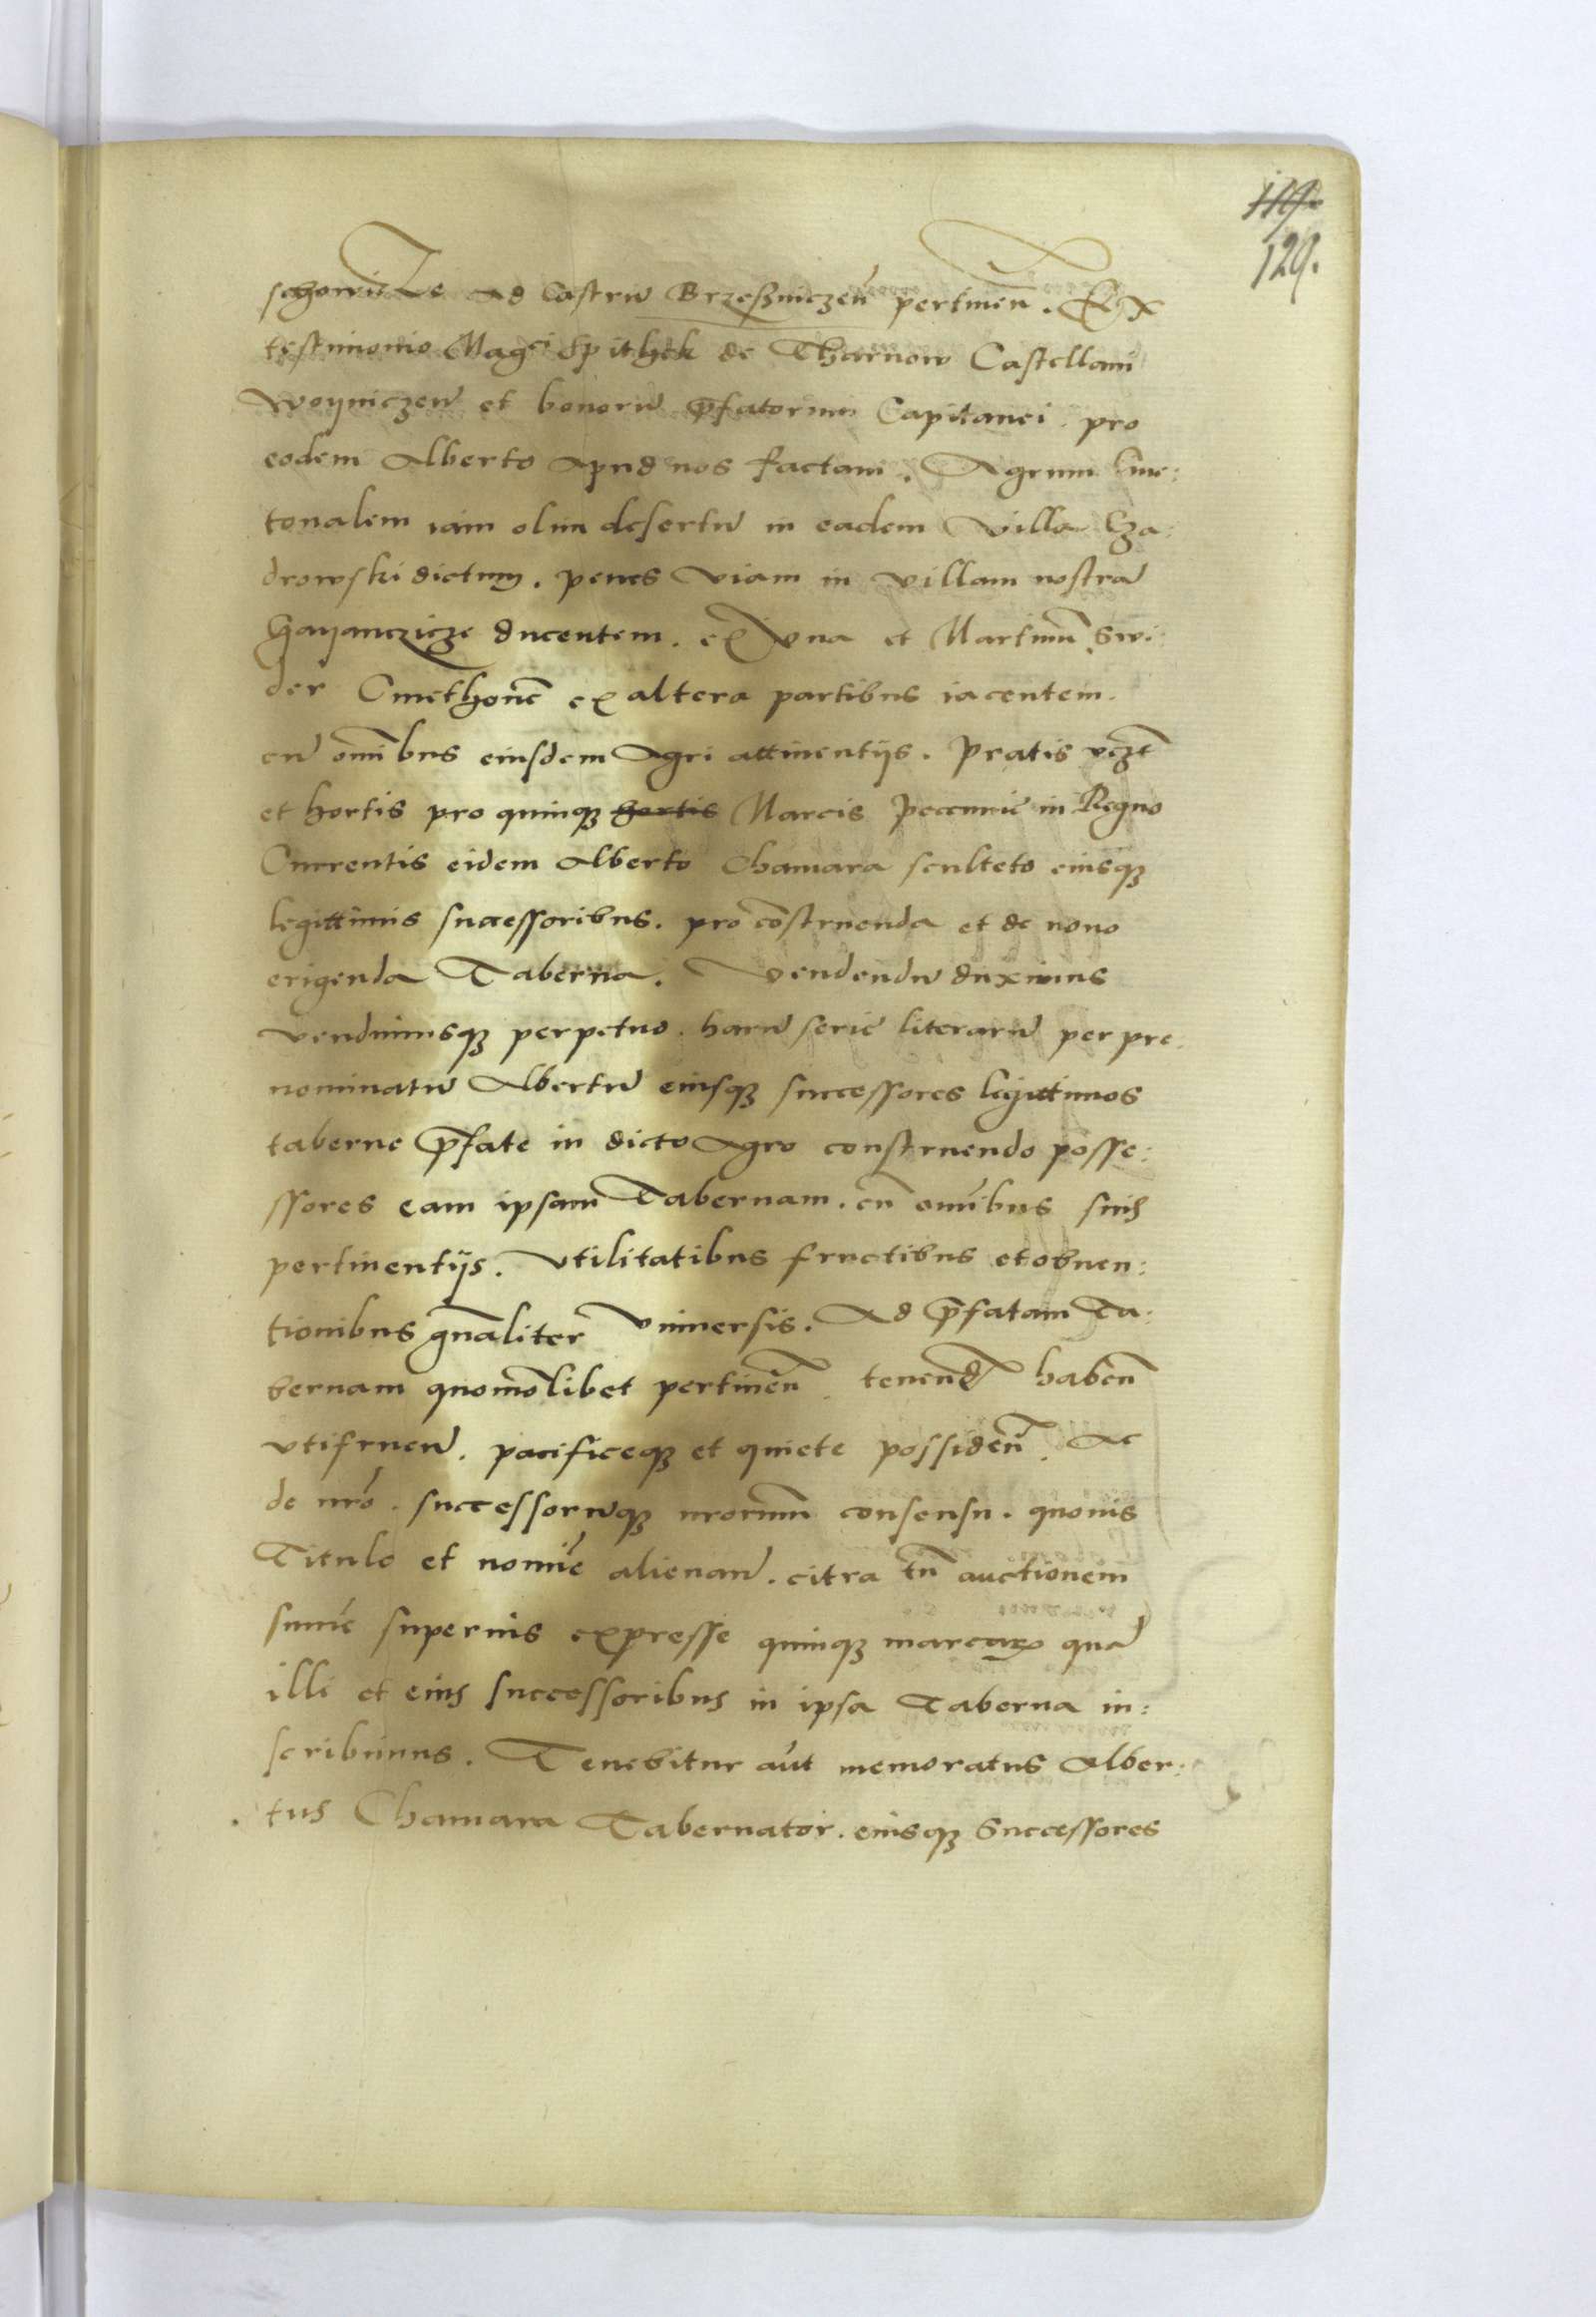 119.
129.
ad Castrū Brzesznyczeñ pertineñ. Ex
testimonio Magci Spithek de Tharnow Castellani
Woyniczeñ et bonorū p̄fatorum Capitanei pro
eodem Alberto apud nos factam. Agrum Cme:
tonalem iam olim desertū in eadem villa Cza:
drowski dictum. penes viam in villam nostrā
Gayanczicze ducentem. ex vna et Martinū Swi:
der Cmethonē ex altera partibus iacentem.
cū om̄ibus eiusdem Agri attinentijs. Pratis vcz̄t
et hortis pro quinqȝ hortis Marcis Pecunie in Regno
Currentis eidem Alberto Chamara sculteto eiusqȝ
legittimis successoribus. pro cōstruenda et de nouo
erigenda Taberna. Vendendū duximus
vendimusqȝ perpetuo. harū serie literarū per pre:
nominatū Albertū eiusqȝ successores legittimos
taberne p̄fate in dicto Agro construendo posse:
ssores eam ipsam Tabernam. cū omībus suis
pertinentijs. Vtilitatibus fructibus et obuen:
tionibus gn̄aliter Vniuersis. Ad p̄fatam Ta:
bernam quomōlibet pertineñ. tenend̄ habeñ
vtifrueñ. pacificeqȝ et quiete possideñ. Ac
de nr̄o. successorūqȝ nrorum consensu. quouis
Titulo et nomīe alienañ. citra tn̄ auctionem
sum̄e superius expresse quinqȝ marcarꝝ quā
illi et eius successoribus in ipsa Taberna in:
scribimus. Tenebitur aūt memoratus Alber:
tus Chamara Tabernator. eiusqȝ Successores